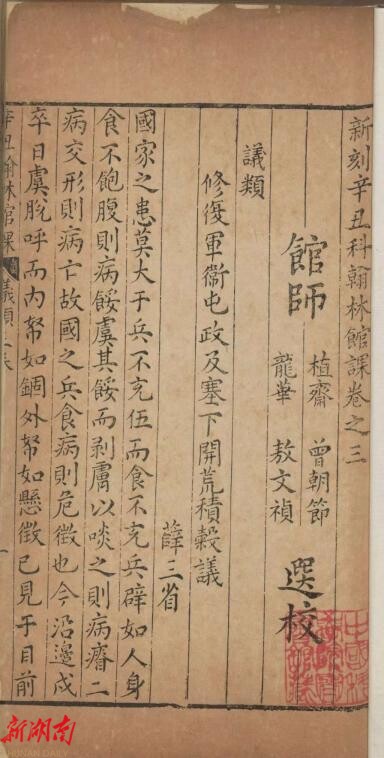 新刻辛丑科翰林館課卷之三
館師
植齋 曾朝節
龍華 敖文禎
選校
議類
修復軍衞屯政及塞下開荒積穀議
薛三省
國家之患莫大于兵不充伍而食不充兵辟如人身
食不飽腹則病餒虞其餒而剥膚以啖之則病瘠二
病交形則病亡故國之兵食病則危徵也今沿邊戍
卒日虞脫呼而内帑如錮外帑如懸徵已見于目前
辛丑翰林館課
議類
新湖南
HUNAN DAILY